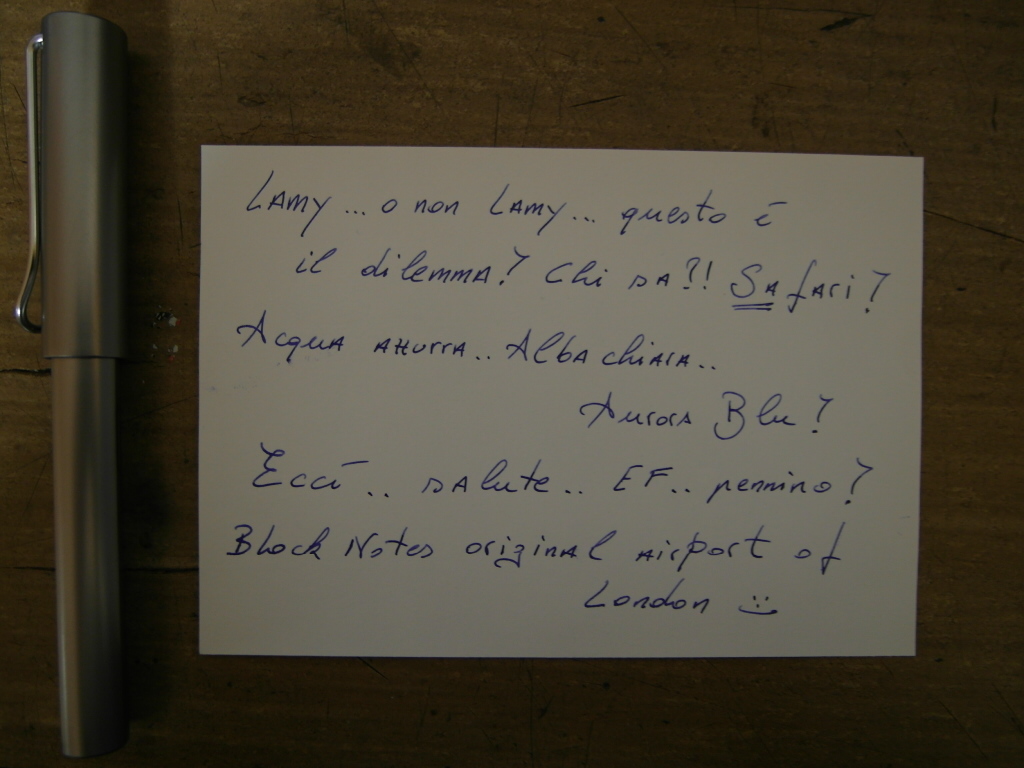 Lamy... o non Lamy... questo è
il dilemma? Chi sa?! Safari?
Acqua azzurra.. Alba chiara..
Aurora Blu?
Eccì.. salute.. EF.. pennino?
Block Notes original airport of
London :)